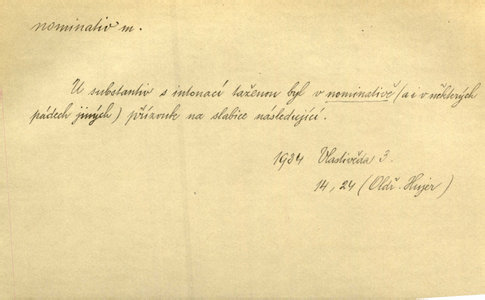 nominativ m.
U substantiv s intonací taženou byl v nominativě (a i v některých
pádech jiných) přízvuk na slabice následující.
1934 Vlastivěda 3.
14, 24 (Oldř. Hujer)